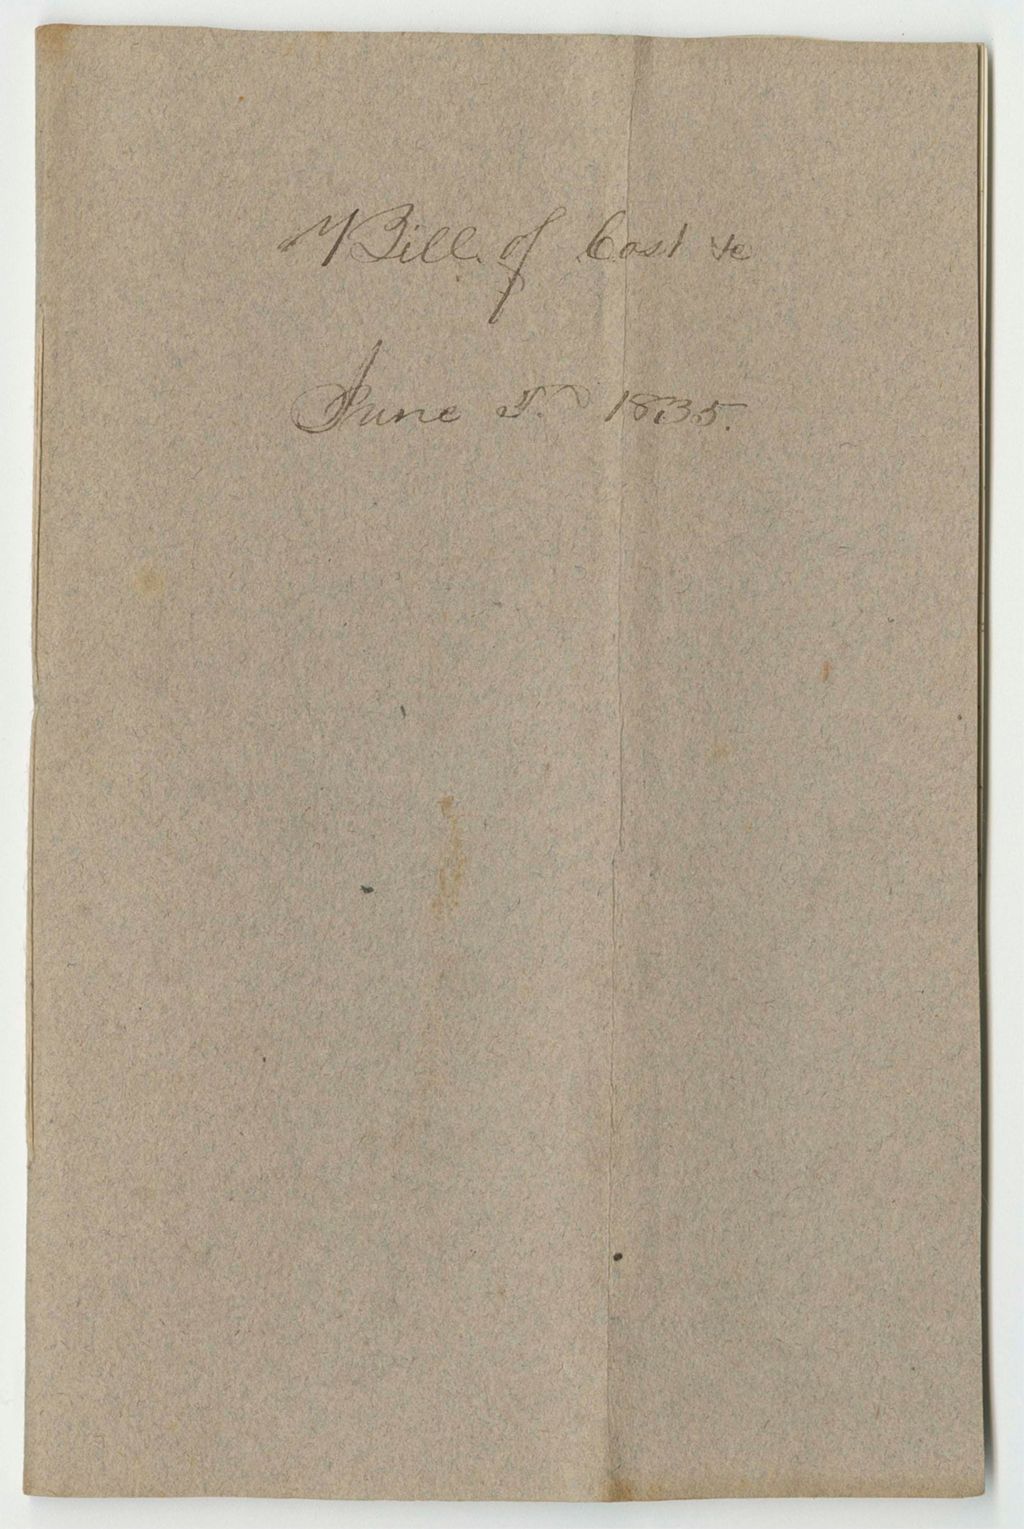 Bill of Cost &c
June 1835.